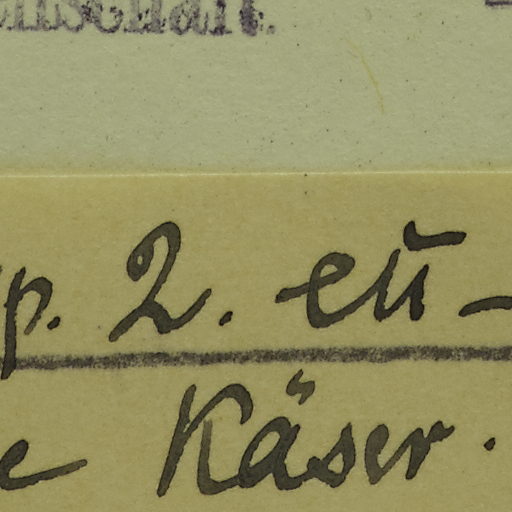 enschaft.
p. 2. eu-
e Käser.